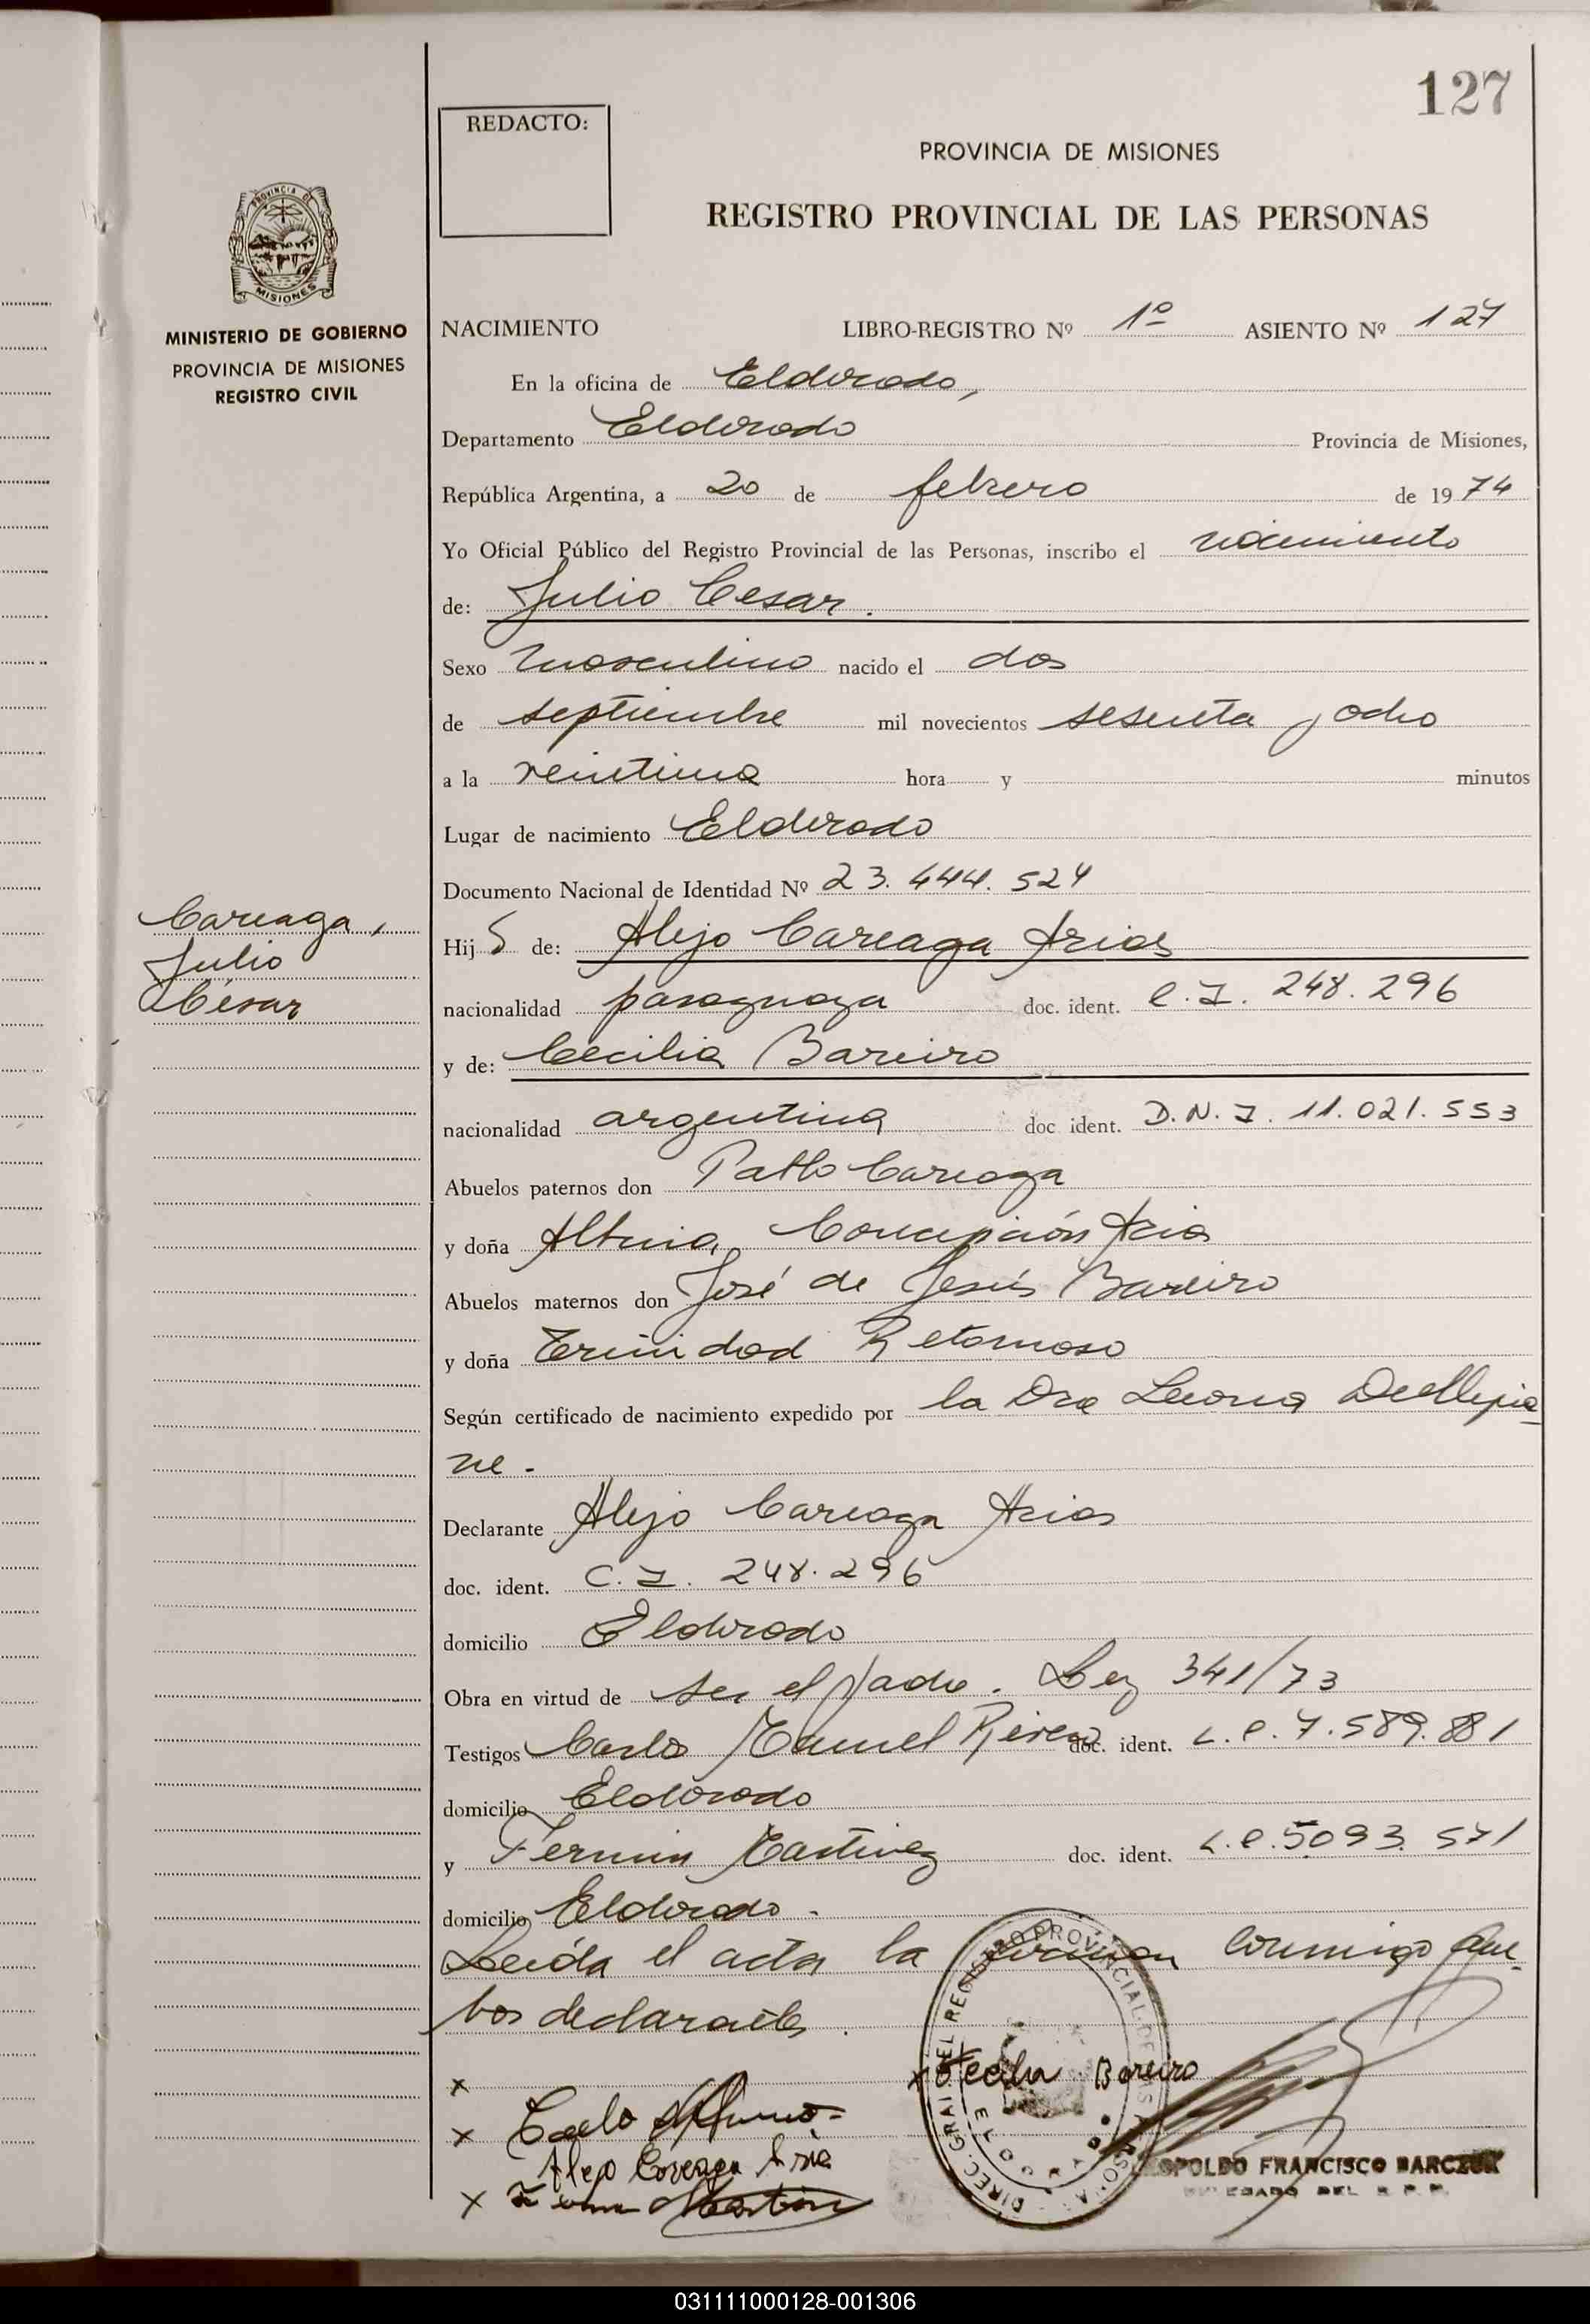 127
REDACTO:
PROVINCIA DE MISIONES
REGISTRO PROVINCIAL DE LAS PERSONAS
PROVINCIA DE
MISIONES
MINISTERIO DE GOBIERNO
PROVINCIA DE MISIONES
REGISTRO CIVIL
NACIMIENTO LIBRO-REGISTRO Nº 1º ASIENTO Nº 127
En la oficina de Eldorado,
Departamento Eldorado Provincia de Misiones,
República Argentina, a 20 de febrero de 1974
Yo Oficial Público del Registro Provincial de las Personas, inscribo el nacimiento
de: Julio Cesar.
Sexo masculino nacido el dos
de septiembre mil novecientos sesenta y ocho
a la veintiuna hora y minutos
Lugar de nacimiento Eldorado
Documento Nacional de Identidad Nº 23.444.524
Careaga,
Julio
César
Hij o de: Alejo Careaga Arias
nacionalidad paraguaya doc. ident. C.I. 248.296
y de: Cecilia Bareiro
nacionalidad argentina doc ident. D.N.I. 11.021.553
Abuelos paternos don Pablo Careaga
y doña Concepción Aria
Abuelos maternos don José de Jesús Bareiro
y doña Trinidad Retornoso
Según certificado de nacimiento expedido por la Dra Leona Dellepia
ne.
Declarante Alejo Careaga Arias
doc. ident. C.I. 248.296
domicilio Eldorado
Obra en virtud de ser el padre. Ley 341/73
Testigos Carlos Manuel Rivero doc. ident. L.E. 7.589.881
domicilio Eldorado
y Fermin Martinez doc. ident. L.E. 5093.571
domicilio Eldorado.
Leída el acta la firman conmigo am-
bos declarantes.
x x Cecilia Bareiro
x Carlo
Alejo Careaga Aria
x Martin
DIREC. GRAL. DEL REGISTRO PROVINCIAL DE LAS PERSONAS
LEOPOLDO FRANCISCO BARCZUK
DELEGADO DEL R.P.P.
031111000128-001306